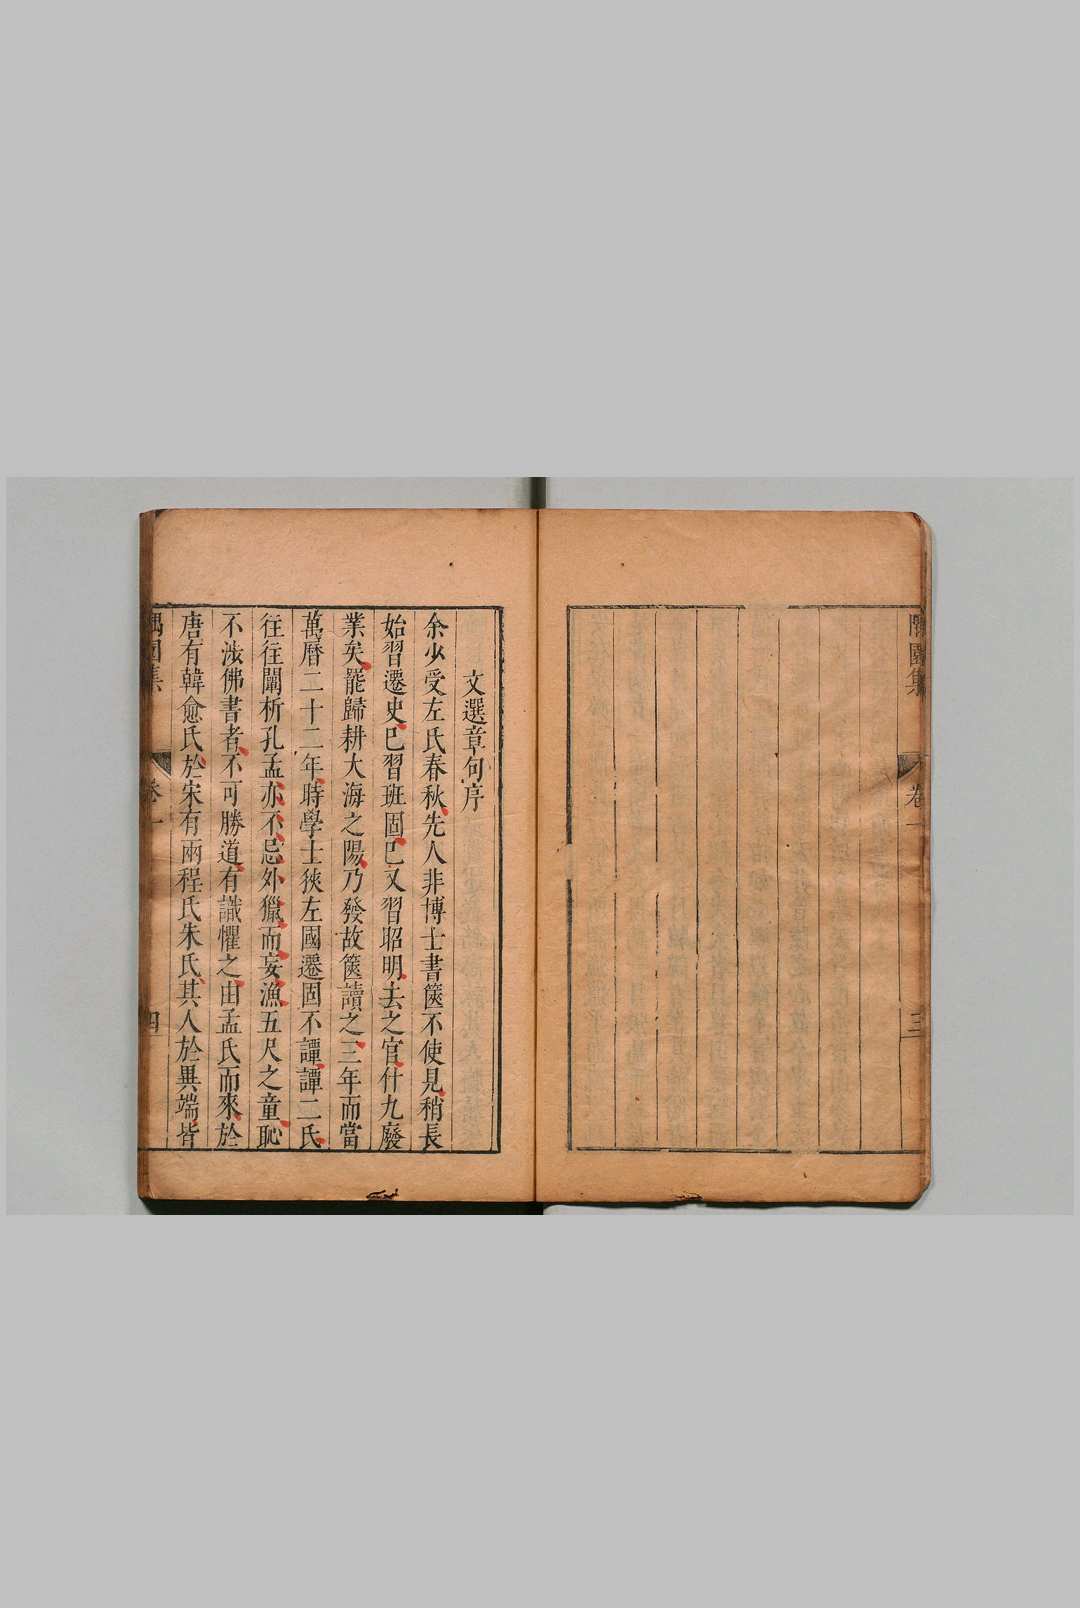 隅園集
卷一
三
文選章句序
余少受左氏春秋先人非博士書篋不使見稍長
始習遷史已習班固已又習昭明去之官什九廢
業矣罷歸耕大海之陽乃發故篋讀之三年而當
萬曆二十二年時學士狹左國遷固不譚譚二氏
往往闡析孔孟亦不忌外獵而妄漁五尺之童恥
不涉佛書者不可勝道有識懼之由孟氏而來於
唐有韓愈氏於宋有兩程氏朱氏其人於異端皆
隅園集
卷一
四